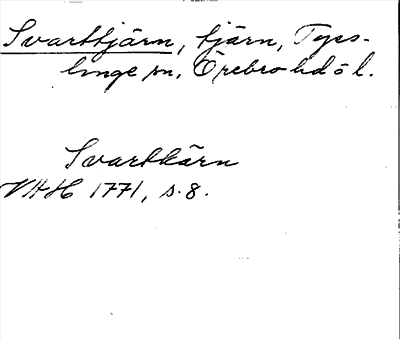 Svarttjärn, tjärn, Tyss-
linge sn, Örebro hd ö l.
Svartkärn
VAH 1771, s. 8.